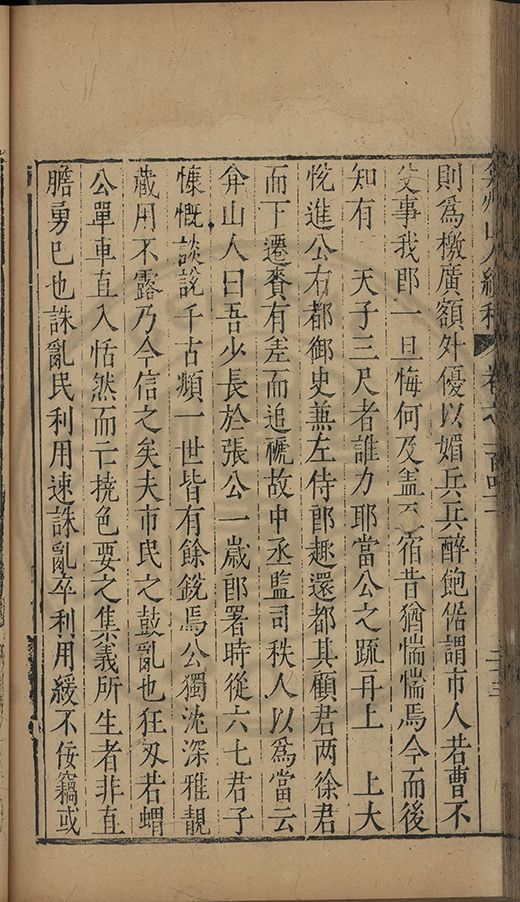 弇州山人續稿 卷之一百四十
則為檄廣額外優以媚兵兵醉飽偕謂市人若曹不
受事我即一旦悔何及盖云宿昔猶惴惴焉今而後
知有 天子三尺者誰力耶當公之䟽再上 上大
悅進公右都御史兼左侍郎趣還都其顧君两徐君
而下遷賚有差而追褫故中丞監司秩人以為當云
弇山人曰吾少長於張公一歲郎署時從六七君子
慷慨談說千古頫一世皆有餘銳焉公獨沈深雅靚
藏用不露乃今信之矣夫市民之鼓亂也狂刃若蝟
公單車直入恬然而亡撓色要之集義所生者非直
膽勇已也誅亂民利用速誅亂卒利用緩不佞竊或